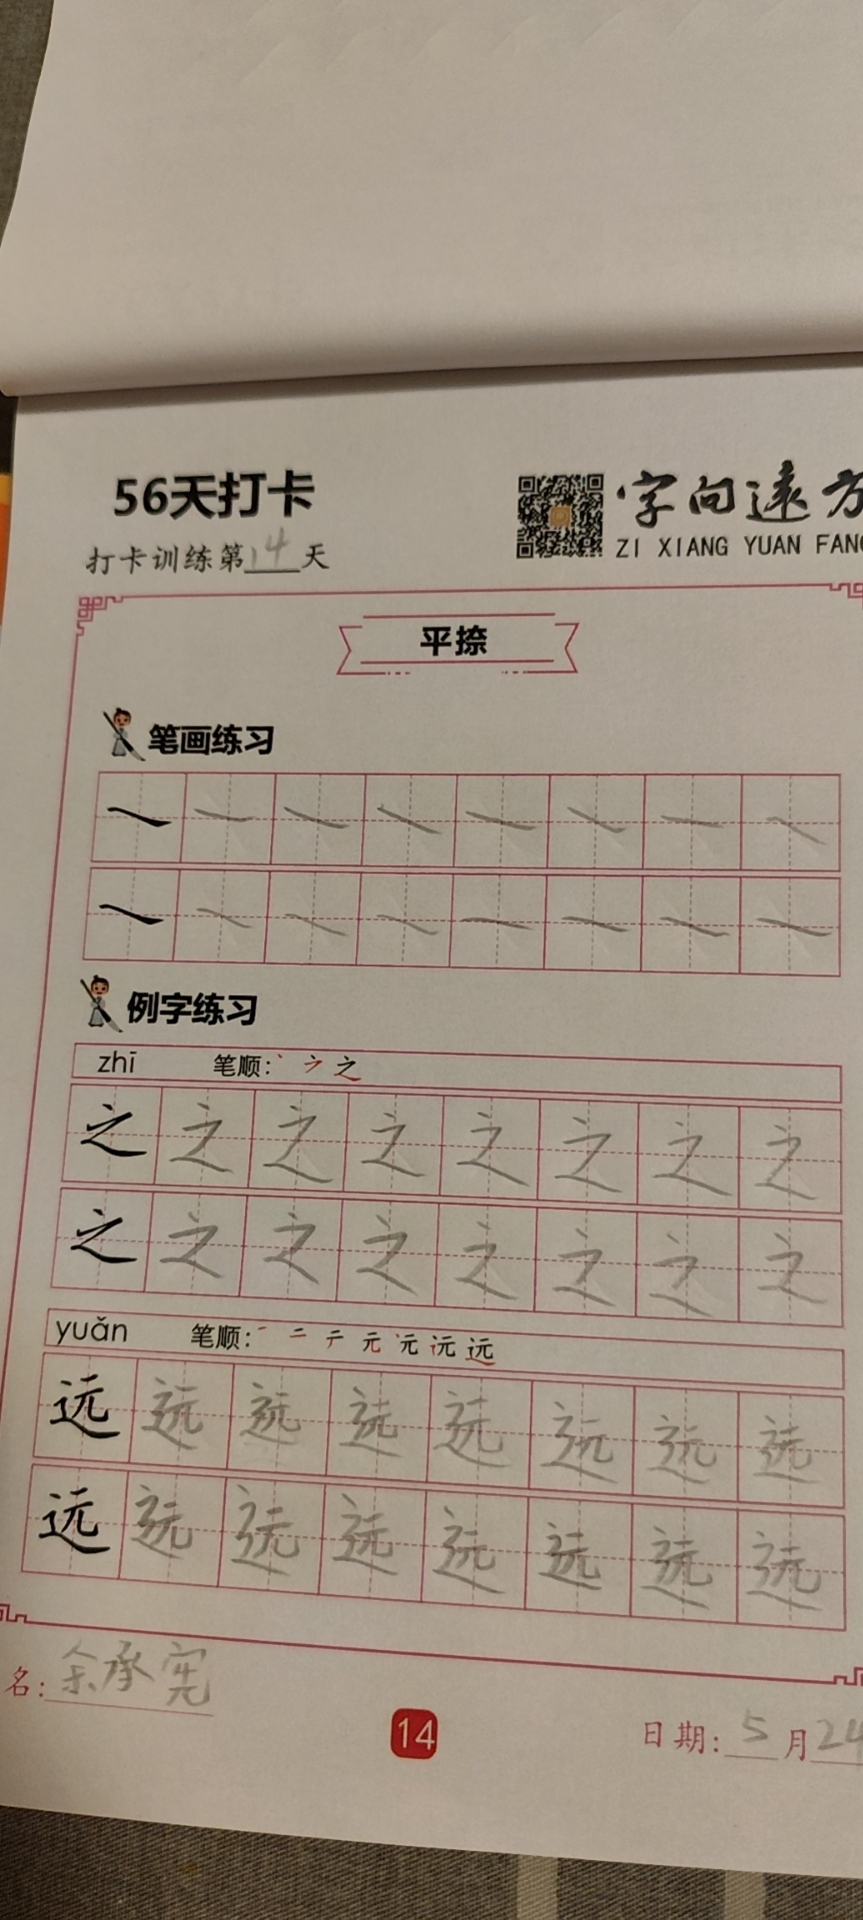 56天打卡
字向遠方
打卡训练第14天
ZI XIANG YUAN FANG
平捺
笔画练习
例字练习
zhī 笔顺: 丶 ㇇ 之
之 之 之 之 之 之 之 之
之 之 之 之 之 之 之 之
yuǎn 笔顺: 一 二 テ 元 元 远 远
远 远 远 远 远 远 远 远
远 远 远 远 远 远 远 远
名: 余承宪
14
日期: 5月24